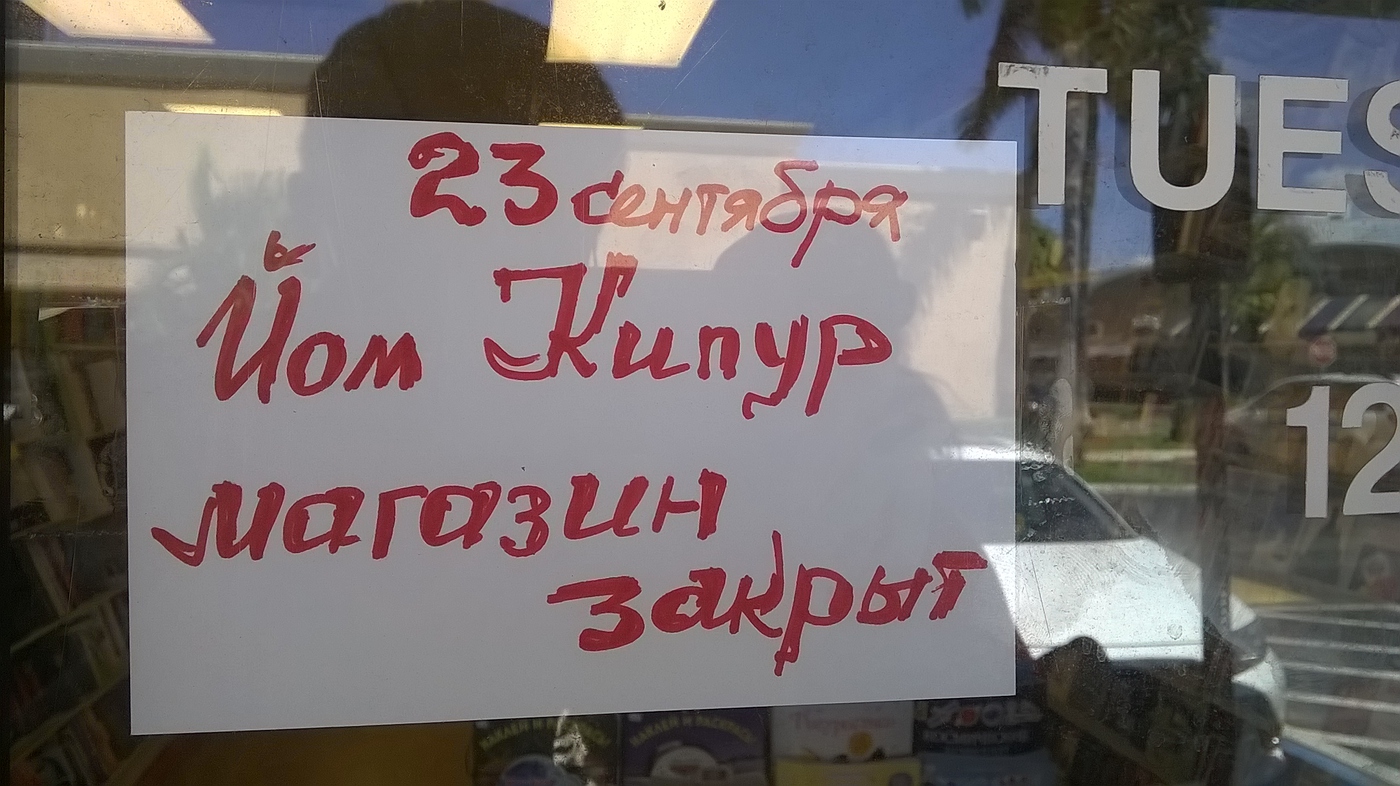 23 сентября
Йом Кипур
магазин
закрыт
TUES
12
НАКЛЕЙ И РАСКРАСЬ